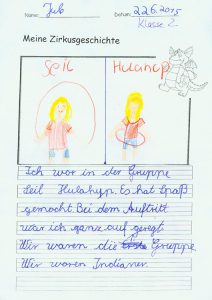 Name: Jule Datum: 22.6.2015
Klasse 2
Meine Zirkusgeschichte
Seil Hulahup
Ich war in der Gruppe
Seil Hulahup. Es hat Spaß
gemacht. Bei dem Auftritt
war ich ganz auf geregt
Wir waren die Gruppe
Wir waren Indianer